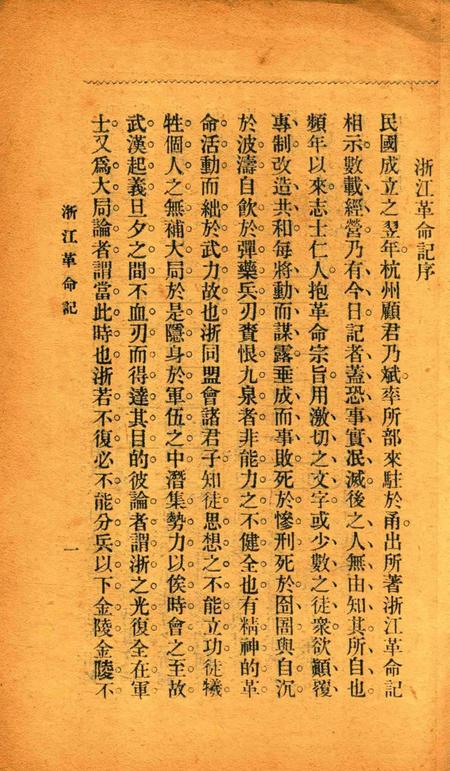 浙江革命記序
民國成立之翌年杭州顧君乃斌率所部來駐於甬出所著浙江革命記
相示數載經營乃有今日記者蓋恐事實泯滅後之人無由知其所自也
頻年以來志士仁人抱革命宗旨用激切之文字或少數之徒衆欲顚覆
專制改造共和每將動而謀露垂成而事敗死於慘刑死於囹圄與自沉
於波濤自飲於彈藥兵刃賷恨九泉者非能力之不健全也有精神的革
命活動而絀於武力故也浙同盟會諸君子知徒思想之不能立功徒犧
牲個人之無補大局於是隱身於軍伍之中潛集勢力以俟時會之至故
武漢起義旦夕之間不血刃而得達其目的彼論者謂浙之光復全在軍
士又爲大局論者謂當此時也浙若不復必不能分兵以下金陵金陵不
浙江革命記
一